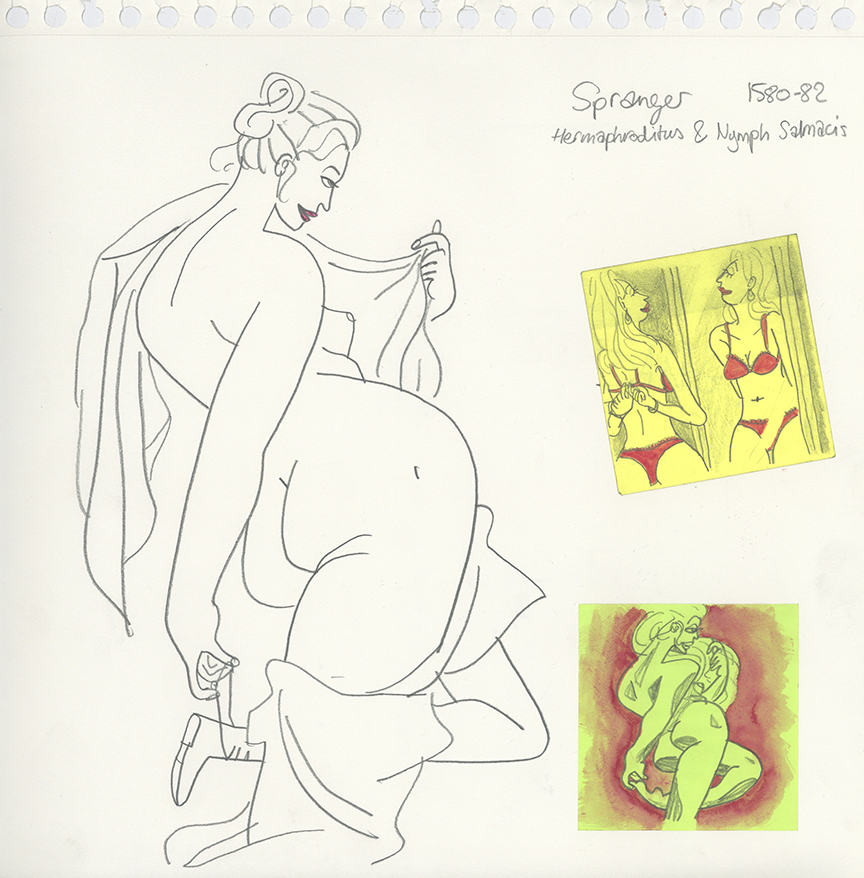 Spranger 1580-82
Hermaphroditus & Nymph Salmacis